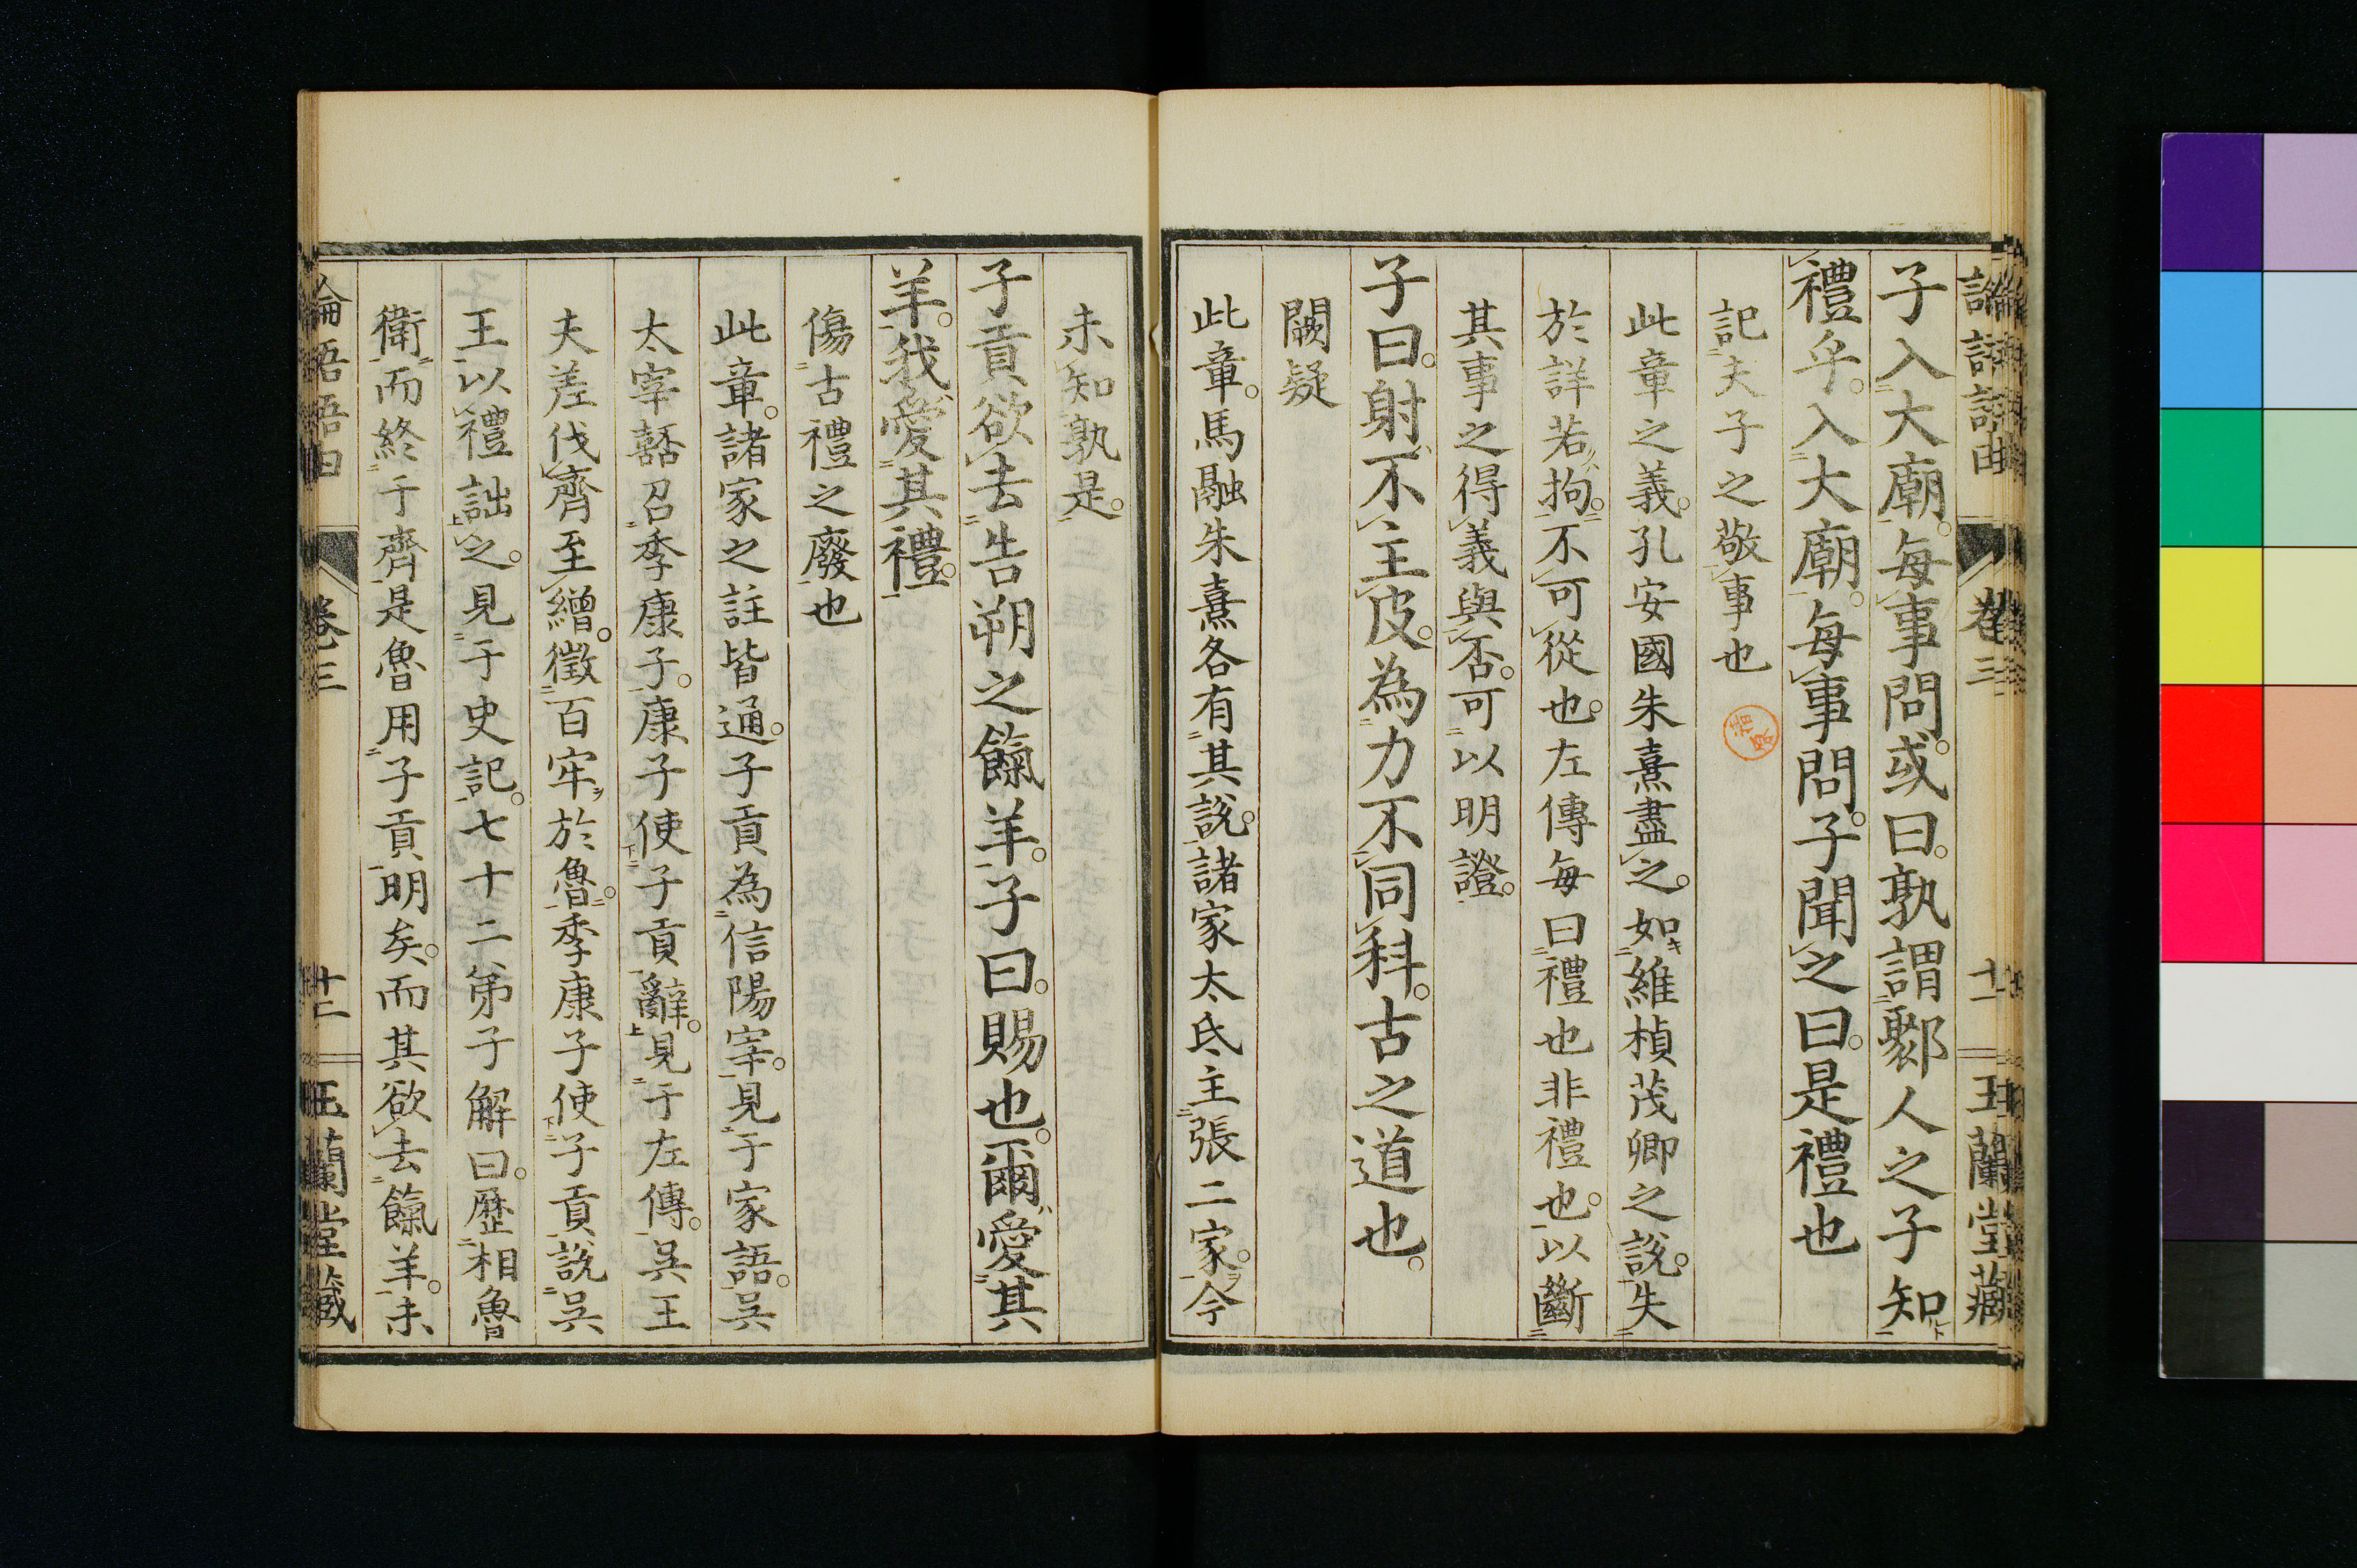 論語語由 卷三 十一 玉蘭堂藏
子入大廟。每事問。或曰。孰謂鄹人之子知
禮乎。入大廟。每事問。子聞之曰。是禮也
記夫子之敬事也
此章之義。孔安國朱熹盡之。如維楨茂卿之説。失
於詳若拘。不可從也。左傳每曰禮也非禮也。以斷
其事之得義與否。可以明證。
子曰。射不主皮。為力不同科。古之道也。
闕疑
此章。馬融朱熹各有其説。諸家太氐主張二家。今
未知孰是。
子貢欲去告朔之餼羊。子曰。賜也。爾愛其
羊。我愛其禮。
傷古禮之廢也
此章。諸家之註皆通。子貢為信陽宰。見于家語。吳
太宰嚭召季康子。康子使子貢辭。見于左傳。吳王
夫差伐齊至繒。徵百牢於魯。季康子使子貢説吳
王以禮詘之。見于史記。七十二弟子解曰。歷相魯
衛而終于齊是魯用子貢明矣。而其欲去餼羊。未
論語語由 卷三 十二 玉蘭堂藏